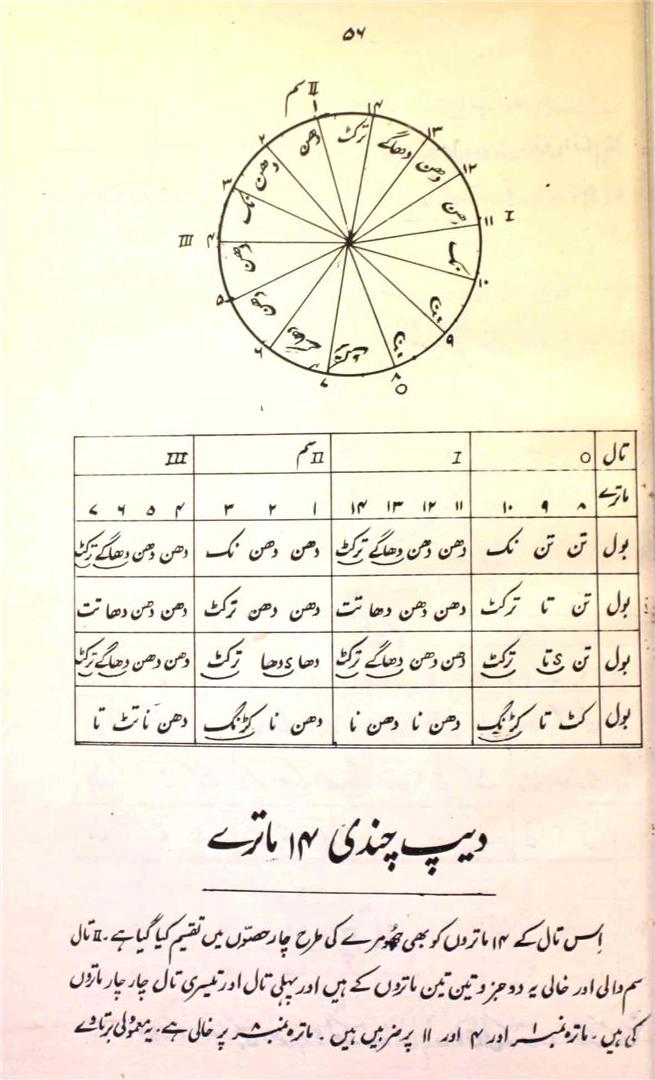 ۵۶
II سم
۱۴
ترکٹ
۱۳
دھاگے
۱۲
دھن
۱۱ I
دھن
۱۰
نک
۹
تن
۸
O
تن
۷
ترکٹ
۶
دھاگے
۵
دھن
۴ III
دھن
۳
نک
۲
دھن
۱
دھن
تال O I II سم III
ماترے ۸ ۹ ۱۰ ۱۱ ۱۲ ۱۳ ۱۴ ۱ ۲ ۳ ۴ ۵ ۶ ۷
بول تن تن نک دھن دھن دھاگے ترکٹ دھن دھن نک دھن دھن دھاگے ترکٹ
بول تن تا ترکٹ دھن دھن دھا تت دھن دھن ترکٹ دھن دھن دھا تت
بول تن S تا ترکٹ دھن دھن دھاگے ترکٹ دھا S دھا ترکٹ دھن دھن دھاگے ترکٹ
بول کٹ تا کڑنگ دھن نا دھن نا دھن نا کڑنگ دھن نا تٹ تا
دیپ چندی ۱۴ ماترے
اِس تال کے ۱۴ ماتروں کو بھی جھُومرے کی طرح چار حصّوں میں تقسیم کیا گیا ہے۔ II تال
سم والی اور خالی یہ دو جز و تین تین ماتروں کے ہیں اور پہلی تال اور تیسری تال چار چار ماتروں
کی ہیں۔ ماترہ نمبر ۱ اور ۴ اور ۱۱ پر ضربیں ہیں۔ ماترہ نمبر ۸ پر خالی ہے۔ یہ معمولی برتاوے